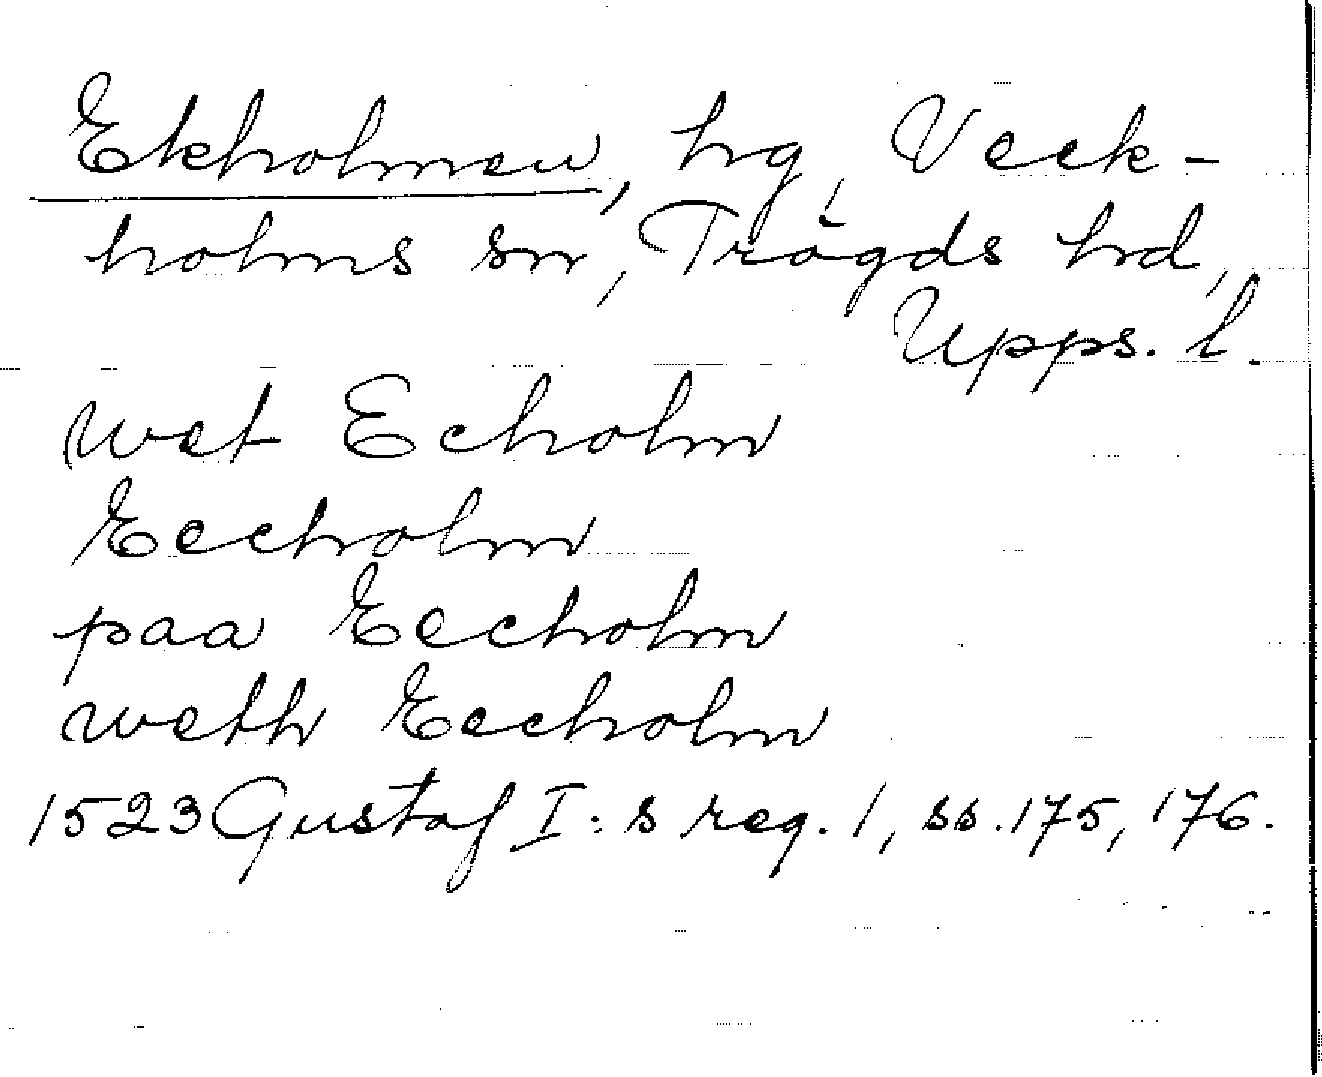 Ekholmen, hg, Veck-
holms sn, Trögds hd,
Upps. l.
wet Echolm
Eccholm
paa Eccholm
weth Eccholm
1523 Gustaf I:s reg. 1, ss. 175, 176.